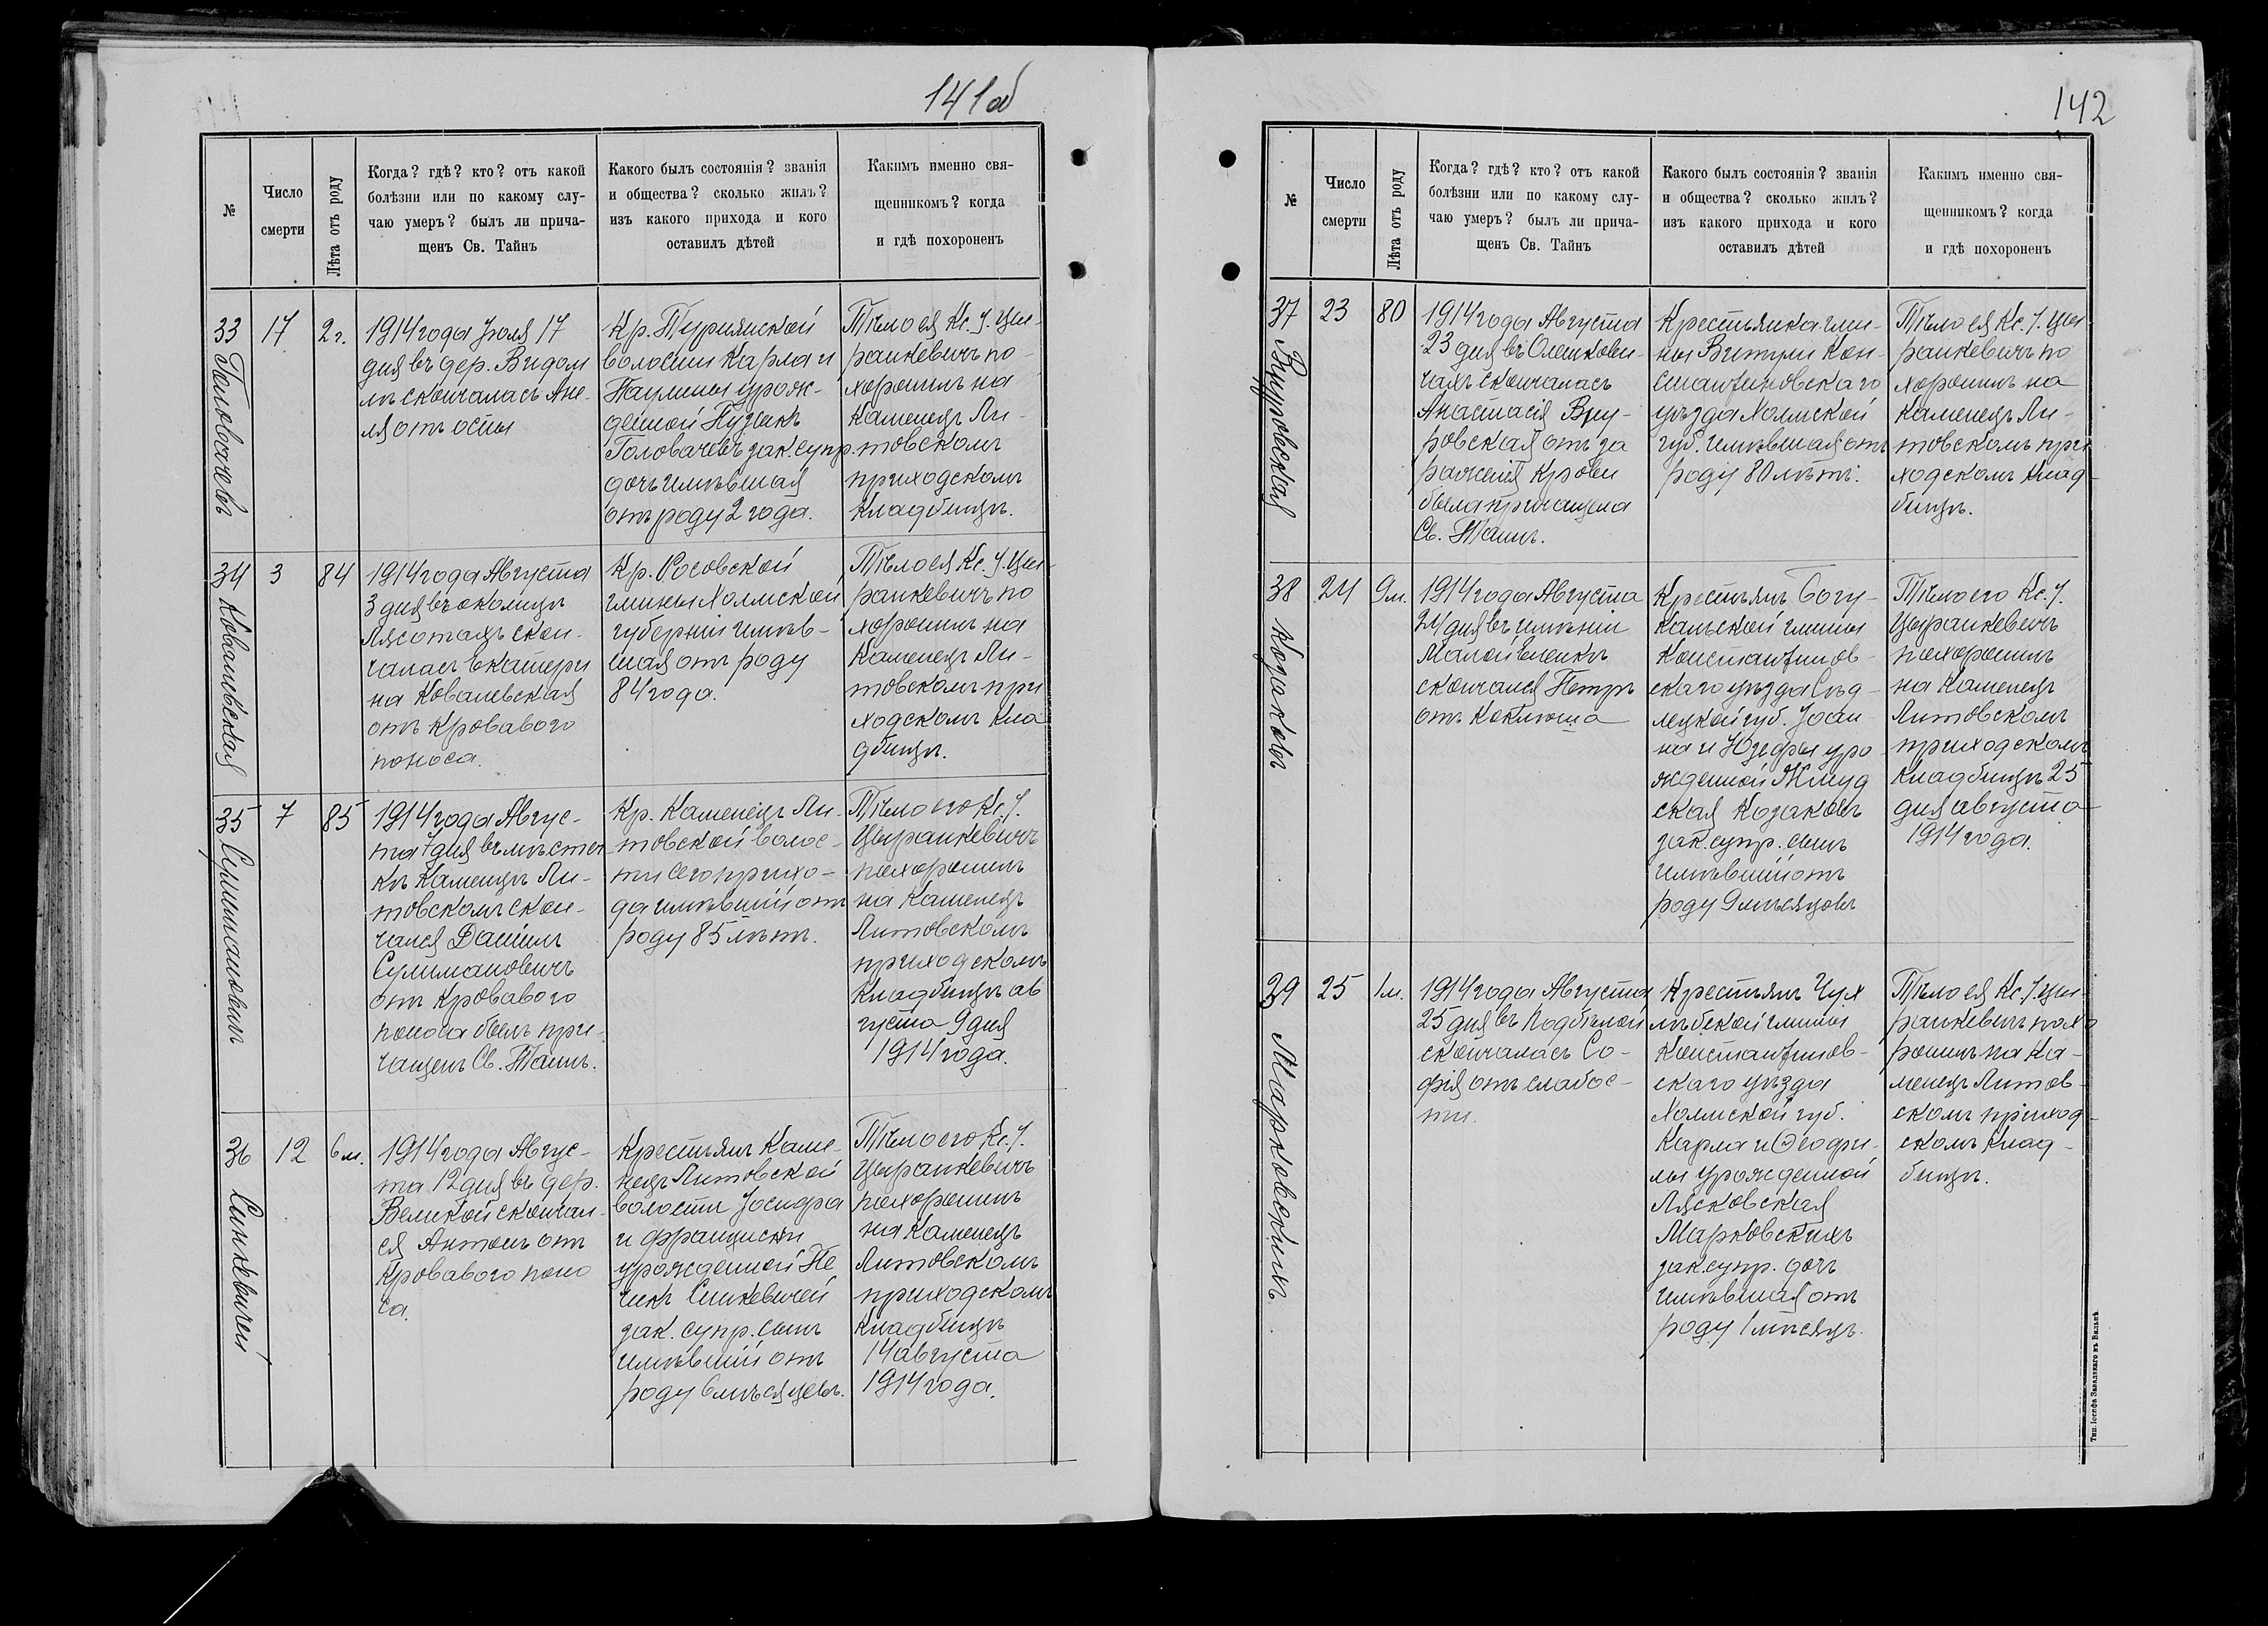 141об
№
Число
смерти
Лѣта отъ роду
Когда? гдѣ? кто? отъ какой
болѣзни или по какому слу-
чаю умеръ? былъ ли прича-
щенъ Св. Тайнъ
Какого былъ состоянія? званія
и общества? сколько жилъ?
изъ какого прихода и кого
оставилъ дѣтей
Какимъ именно свя-
щенникомъ? когда
и гдѣ похороненъ
33
Головачевъ
17
2 г.
1914 года Іюля 17
дня въ дер. Видом
лѣ скончалась Ане-
ля отъ оспы
Кр. Турнянской
волости Карла и
Паулины урож-
денной Пузыкъ
Головачевъ зак. супр.
дочь имѣвшая
отъ роду 2 года.
Тѣло ея Кс. У. Цы-
ранкевичъ по-
хоронилъ на
Каменецъ Ли-
товскомъ
приходскомъ
кладбищѣ.
34
Ковалевская
3
84
1914 года Августа
3 дня въ околицѣ
Лясотахъ скон-
чалась Екатери
на Ковалевская
отъ кроваваго
поноса.
Кр. Росовской
гмины Холмской
губерніи имѣв-
шая отъ роду
84 года.
Тѣло ея Кс. У. Цы-
ранкевичъ по
хоронилъ на
Каменецъ Ли-
товскомъ при
ходскомъ кла
дбищѣ.
35
Сулимановичъ
7
85
1914 года Авгус-
та 7 дня въ мѣстеч-
кѣ Каменцѣ Ли-
товскомъ скон-
чался Даніилъ
Сулимановичъ
отъ кроваваго
поноса былъ при-
чащенъ Св. Таинъ.
Кр. Каменецъ Ли-
товской волос-
ти сего прихо-
да имѣвшій отъ
роду 85 лѣтъ.
Тѣло его Кс. У.
Цыранкевичъ
похоронилъ
на Каменецъ
Литовскомъ
приходскомъ
кладбищѣ ав
густа 9 дня
1914 года.
36
Синкевичей
12
6 м.
1914 года Авгус-
та 12 дня въ дер.
Великой скончал-
ся Антонъ отъ
кроваваго поно
са.
Крестьянъ Каме-
нецъ Литовской
волости Іосифа
и Франциски
урожденной Пе
чикъ Синкевичей
зак. супр. сынъ
имѣвшій отъ
роду 6 мѣсяцевъ.
Тѣло его Кс. У.
Цыранкевичъ
похоронилъ
на Каменецъ
Литовскомъ
приходскомъ
кладбищѣ
14 августа
1914 года.
142
№
Число
смерти
Лѣта отъ роду
Когда? гдѣ? кто? отъ какой
болѣзни или по какому слу-
чаю умеръ? былъ ли прича-
щенъ Св. Тайнъ
Какого былъ состоянія? званія
и общества? сколько жилъ?
изъ какого прихода и кого
оставилъ дѣтей
Какимъ именно свя-
щенникомъ? когда
и гдѣ похороненъ
37
23
80
1914 года Августа
23 дня въ Олешкови-
чахъ скончалась
Анастасія
ровская отъ за
раженія крови
была причащена
Св. Таинъ.
Крестьянка гми-
ны Витули Кон-
стантиновскаго
уѣзда Холмской
губ. имѣвшая отъ
роду 80 лѣтъ.
Тѣло ея Кс. У. Цы
ранкевичъ по
хоронилъ на
Каменецъ Ли-
товскомъ при
ходскомъ клад-
бищѣ.
38
Козаковъ
24
9 м.
1914 года Августа
24 дня въ имѣніи
Малой Еленкѣ
скончался Петръ
отъ коклюша
Крестьянъ Богу-
кальской гмины
Константинов-
скаго уѣзда Сѣд-
лецкой губ. Іоан
на и Юзефы уро
жденной Жмуд
ская Козаковъ
зак. супр. сынъ
имѣвшій отъ
роду 9 мѣсяцовъ
Тѣло его Кс. У.
Цыранкевичъ
похоронилъ
на Каменецъ
Литовскомъ
приходскомъ
кладбищѣ 25
дня августа
1914 года.
39
Марковскихъ
25
1 м.
1914 года Августа
25 дня въ Подбѣлой
скончалась Со-
фія отъ слабос-
ти.
Крестьянъ Хух
лѣбской гмины
Константинов-
скаго уѣзда
Холмской губ.
Карла и Феофи-
лы урожденной
Лясковская
Марковскихъ
зак. супр. дочь
имѣвшая отъ
роду 1 мѣсяцъ.
Тѣло ея Кс. У. Цы-
ранкевичъ похо
ронилъ на Ка-
менецъ Литов-
скомъ приход-
скомъ клад-
бищѣ.
Тип. Іосифа Завадзкаго въ Вильнѣ